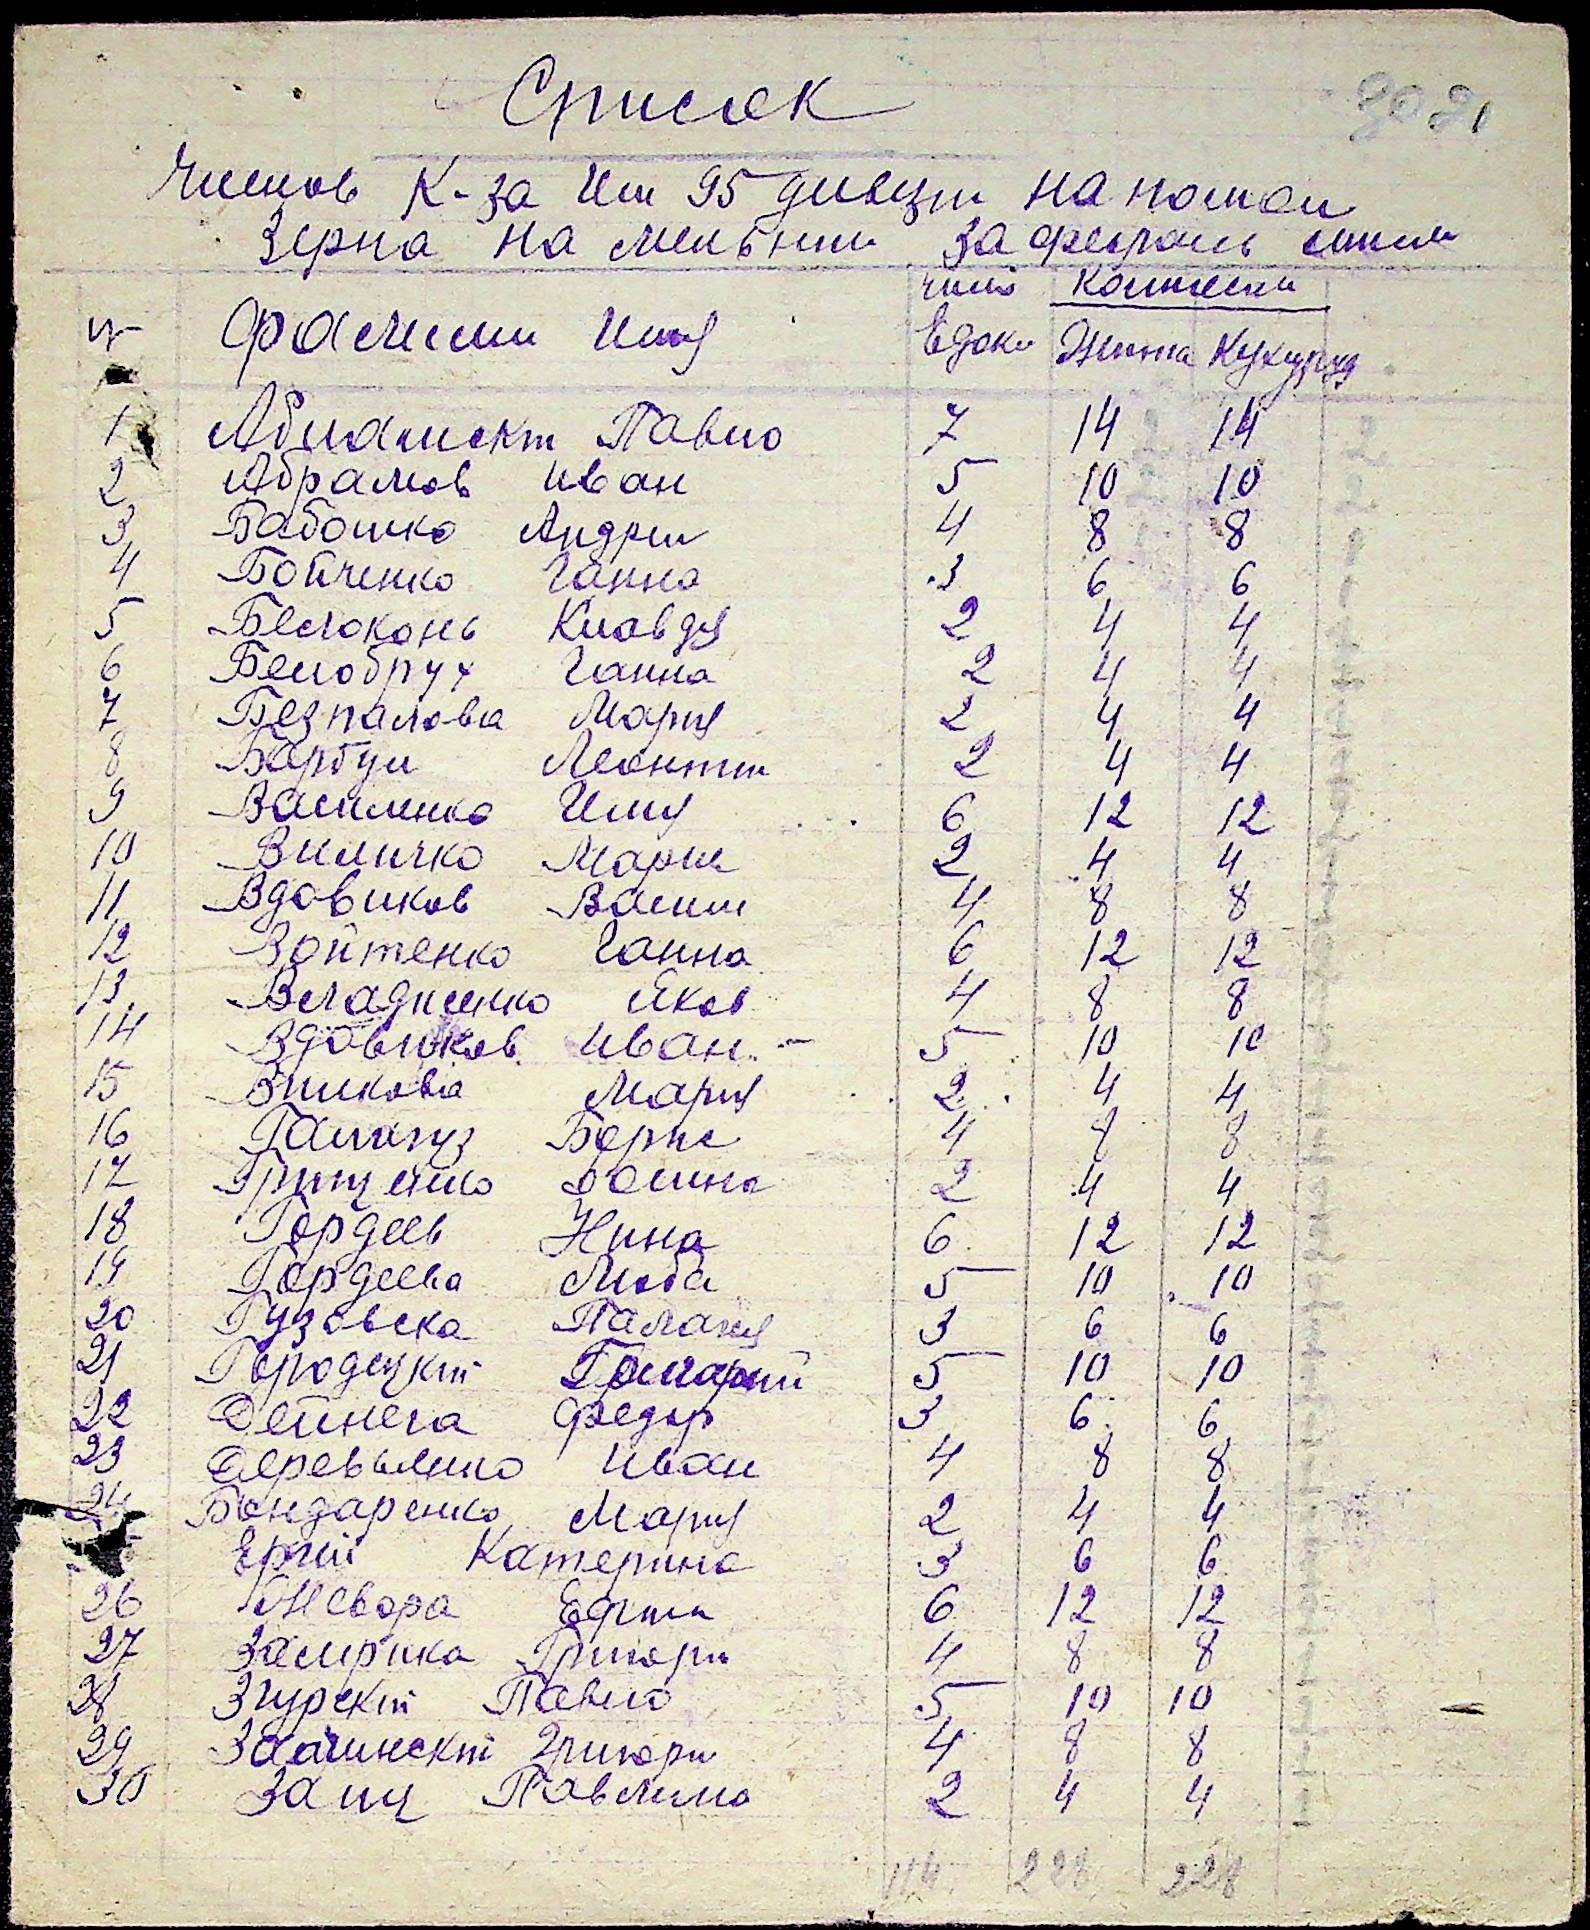 Список
Членов К-за Им 95 дивизии на помол
Зерна на мельнице за февраль
число
№ Фамилии Имя Едоки Жита Кукуруд
1 Павло 7 14 14
2 Абрамов Иван 5 10 10
3 Бабошко Андрии 4 8 8
4 Бойченко Ганна 3 6 6
5 Белоконь Клавдя 2 4 4
6 Белобрух Ганна 2 4 4
7 Безпалова Мария 2 4 4
8 Барбул Леонтии 2 4 4
9 Василенко Илия 6 12 12
10 Виличко Мария 2 4 4
11 Вдовиков Васил 4 8 8
12 Войтенко Ганна 6 12 12
13 Владиченко Яков 4 8 8
14 Вдовиков Иван 5 10 10
15 Вилкова Мария 2 4 4
16 Галагуз Борис 4 8 8
17 Грищенко Долина 2 4 4
18 Гордеев Нина 6 12 12
19 Гордеева Люба 5 10 10
20 Гузовска Палагия 3 6 6
21 Городецкий 5 10 10
22 Дейнега Федор 3 6 6
23 Деревянко Иван 4 8 8
24 Бондаренко Мария 2 4 4
Ергии Катерина 3 6 6
26 Жевора Ефим 6 12 12
27 Замрика Григори 4 8 8
28 Згурский Павло 5 10 10
29 Григори 4 8 8
30 Заиц Павлина 2 4 4
114 228 228